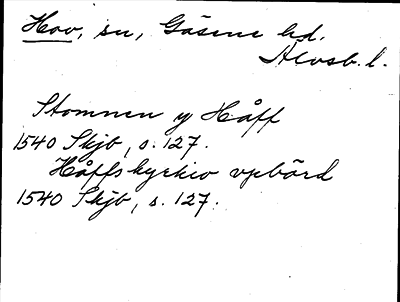 Hov, sn, Gäsene hd.
Älvsb. l.
Stomnen y Håff
1540 Skjb, s. 127.
Håffskyrkio vpbörd
1540 Skjb, s. 127.